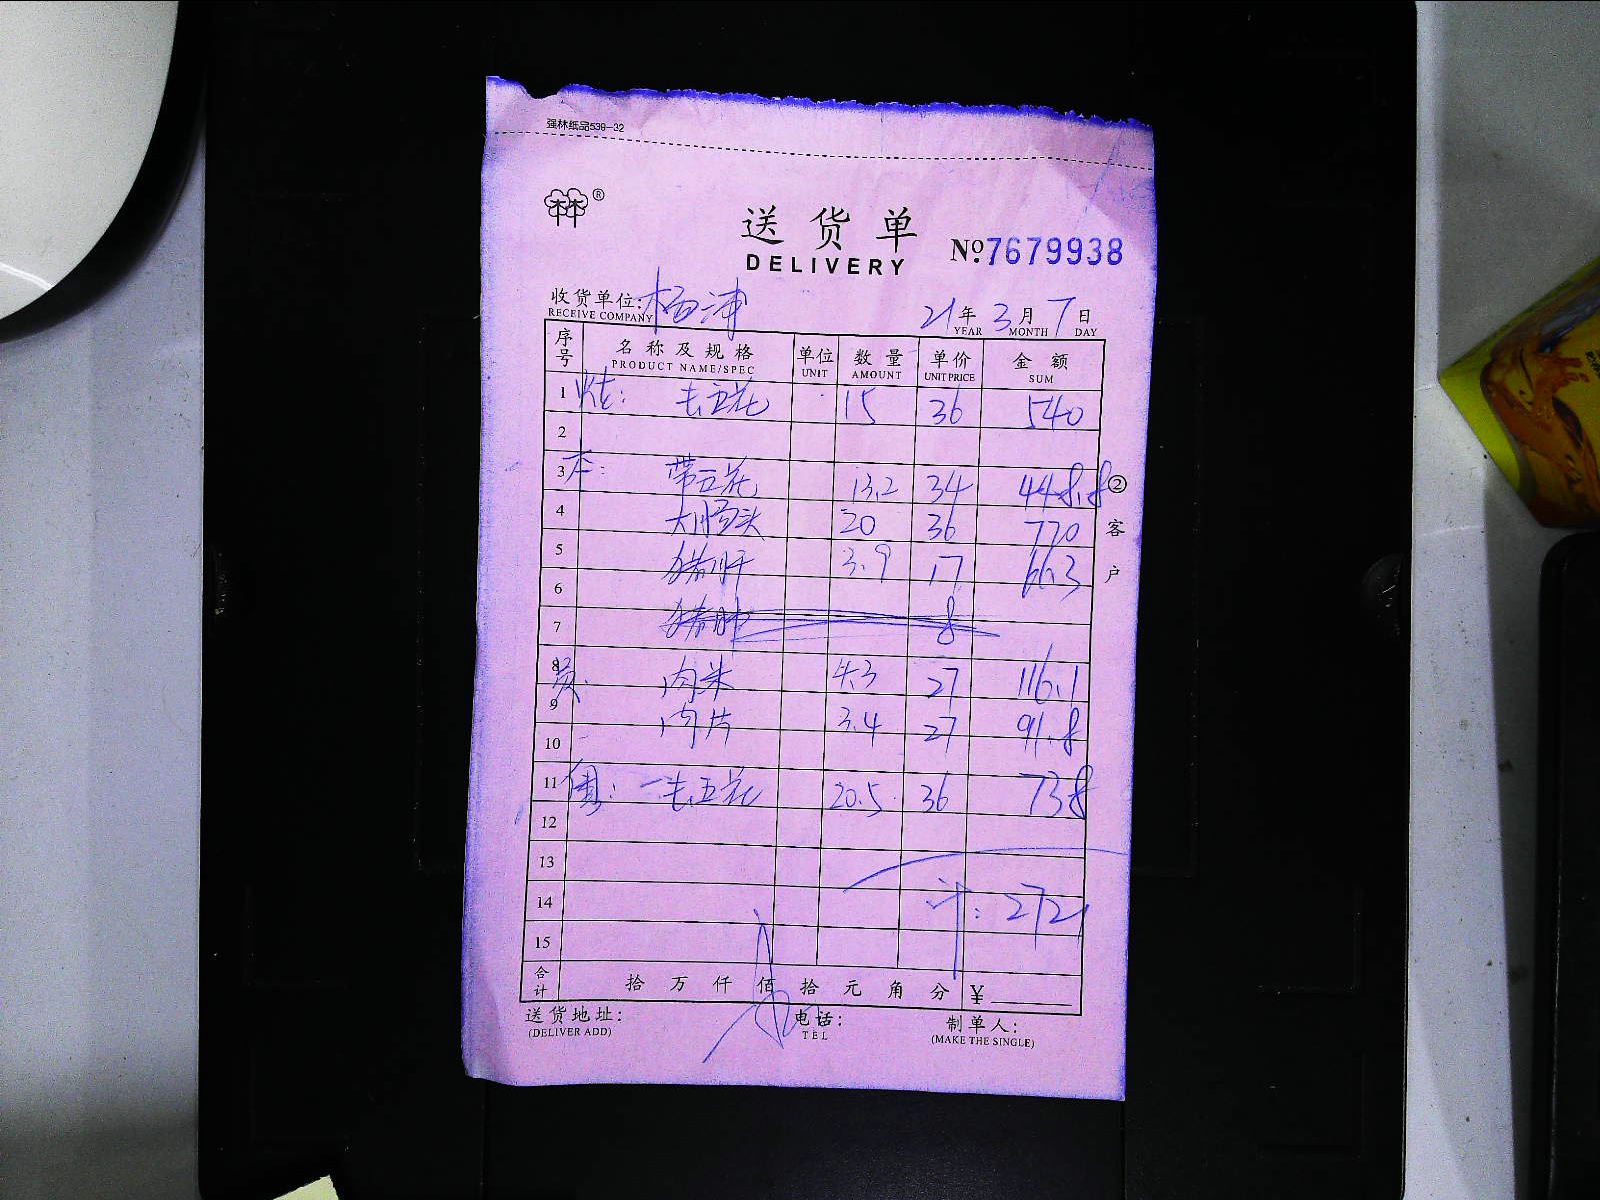 强林纸品538-32
送货单
DELIVERY
№ 7679938
收货单位: 杨浦 21年 3月 7日
RECEIVE COMPANY YEAR MONTH DAY
序号 名称及规格 单位 数量 单价 金额
PRODUCT NAME/SPEC UNIT AMOUNT UNIT PRICE SUM
1 去五花 15 36 540
2
3 本: 带五花 13.2 34 448.8
4 大肠头 20 36 720
5 猪肝 3.9 17 66.3
6
7 8
8 肉米 4.3 27 116.1
9 肉片 3.4 27 91.8
10
11 去五花 20.5 36 738
12
13
14 计: 2721
15
合计 拾 万 仟 佰 拾 元 角 分 ¥
送货地址: 电话: 制单人:
(DELIVER ADD) TEL (MAKE THE SINGLE)
②客户